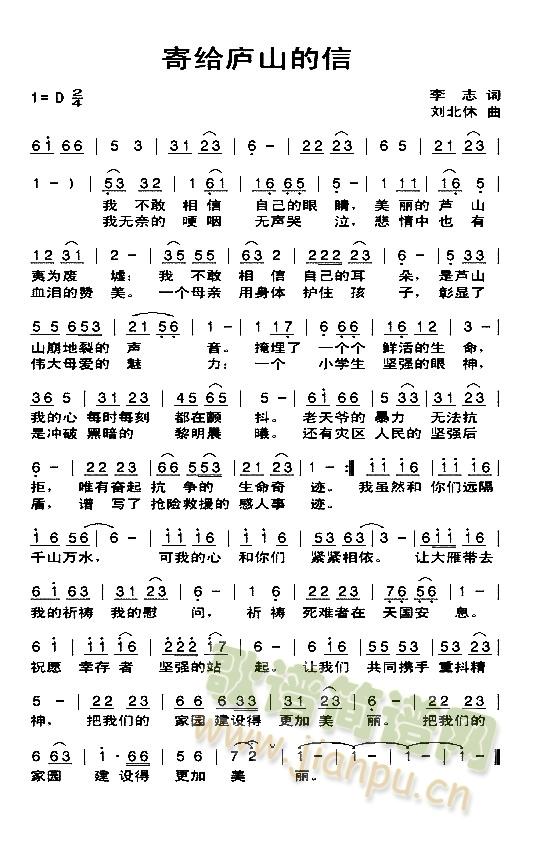 寄给庐山的信
1=D 2/4
李 志 词
刘北休 曲
6i 66 | 5 3 | 31 23 | 6 - | 22 23 | 6i 5 | 22 23 |
1 - ) | 53 32 | 1 61 | 16 65 | 5 - | 1 11 | 16 5 |
我 不敢 相信 自己的眼 睛，美 丽的 芦山
我无亲的 哽咽 无声哭 泣，悲 情中 也有
12 31 | 2 - | 35 55 | 63 2 | 222 23 | 6 - | 5 33 |
夷为废 墟；我 不敢 相信 自己的耳 朵，是芦山
血泪的赞 美。一个母亲 用身体 护住 孩 子，彰显了
5 5 653 | 21 56 | 1 - | 1 17 | 6 66 | 16 12 | 3 - |
山崩地裂的 声 音。掩埋了 一个个 鲜活的生 命，
伟大母爱的 魅 力；一个 小学生 坚强的眼 神，
36 5 | 323 23 | 45 65 | 3 - | 61 65 | 5 33 | 31 23 |
我的心 每时每刻 都在颤 抖。老天爷的 暴力 无法抗
是冲破 黑暗的 黎明晨 曦。还有灾区 人民的 坚强后
6 - | 22 23 | 66 553 | 21 23 | 1 - :‖ 11 16 | 11 16 |
拒，唯有奋起 抗争的 生命奇 迹。我虽然和 你们远隔
盾，谱写了 抢险救援的 感人事 迹。
i 6 56 | 6 - | i i 16 | i i 16 | 53 63 | 3 - | 6 11 16 |
千山万水，可我的心 和你们 紧紧相依。让大雁带去
6 1 63 | 31 23 | 6 - | 1 1 | 22 23 | 76 56 | 6 - |
我的祈祷 我的慰 问，祈祷 死难者在 天国安 息。
6 i | i i 16 | 222 17 | 6 - | 6 16 | 55 53 | 53 23 |
祝愿 幸存者 坚强的站 起。让我们 共同携手 重抖精
5 - | 22 23 | 66 633 | 31 23 | 6 - | 22 23 |
神，把我们的 家园建设得 更加美 丽。把我们的
6 63 | 1· 66 | 5 5 6 | 72 | i - | i - | i - ‖
家园 建设得 更加 美 丽。
歌谱简谱网
www.jianpu.cn